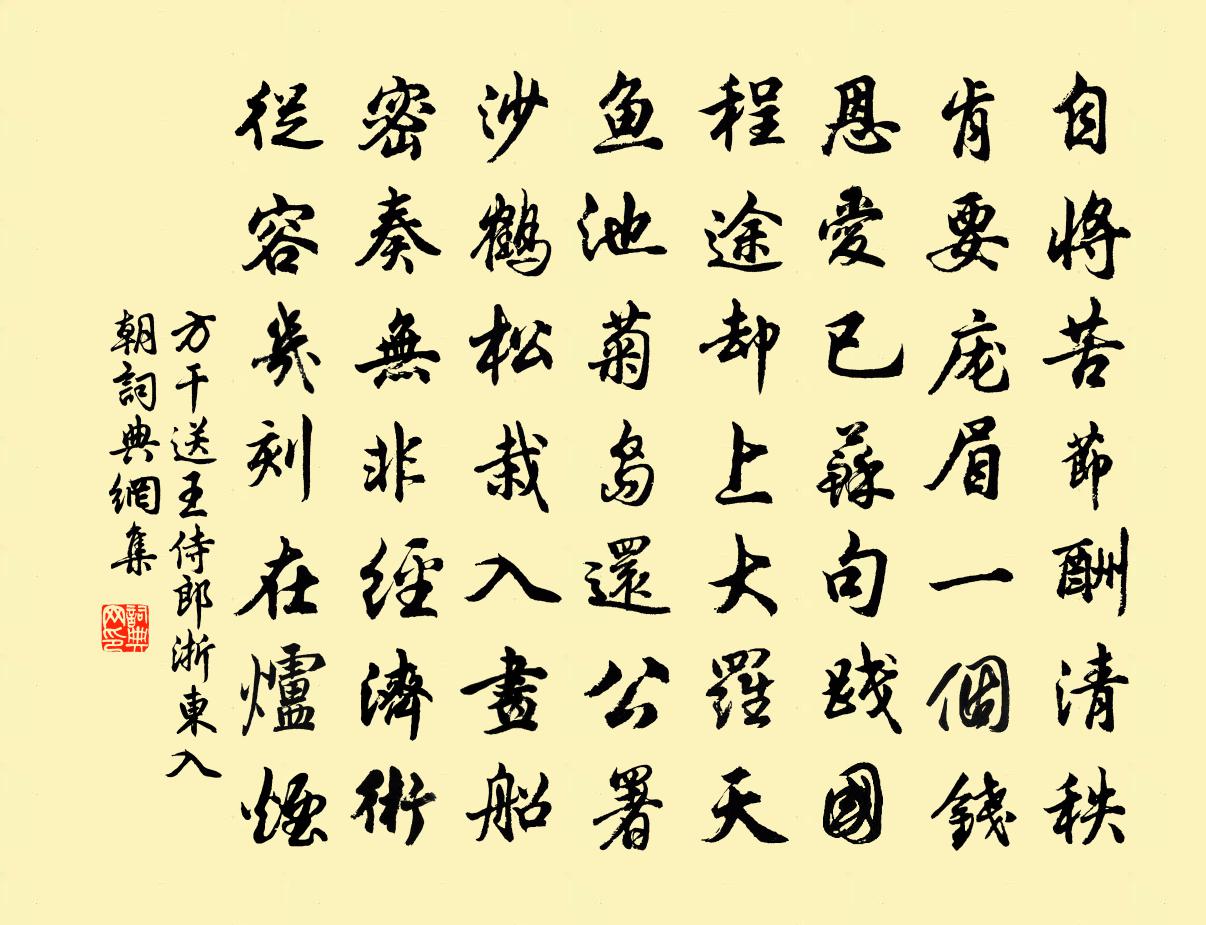 自將苦節酬清秩
肯要庬眉一個錢
恩愛已蘇句踐國
程途却上大羅天
魚池菊島還公署
沙鶴松栽入畫船
密奏無非經濟術
從容幾刻在爐煙
方干送王侍郎浙東入
朝詞典網集
詞典
网印